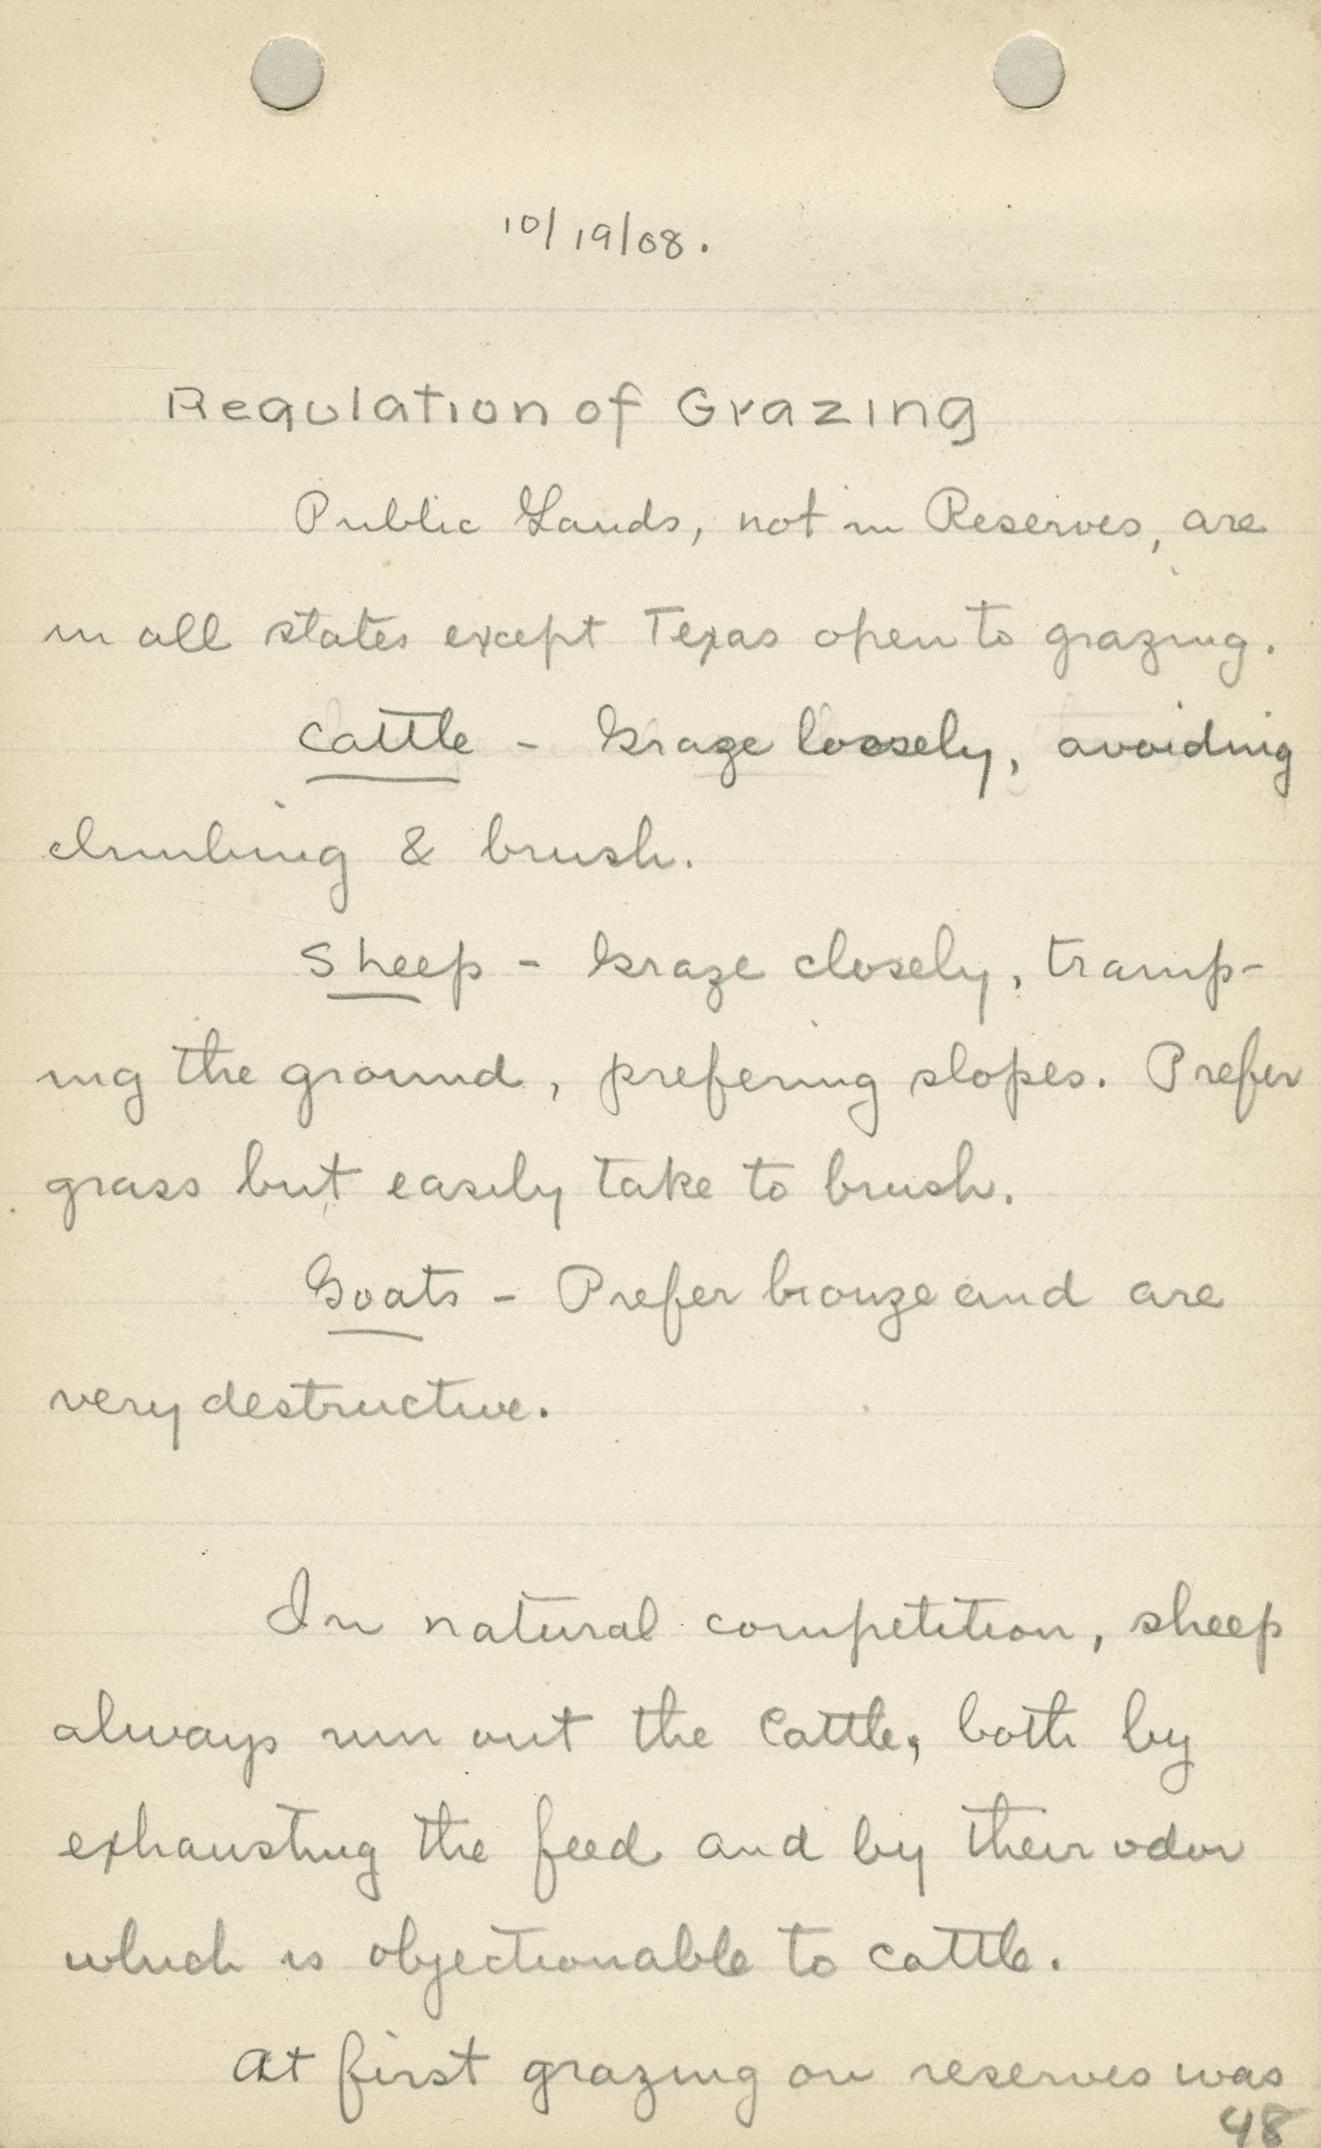 10/19/08.
Regulation of Grazing
Public Lands, not in Reserves, are
in all states except Texas open to grazing.
Cattle - Graze loosely, avoiding
climbing & brush.
Sheep - Graze closely, tramp-
ing the ground, prefering slopes. Prefer
grass but easily take to brush.
Goats - Prefer brouze and are
very destructive.
In natural competition, sheep
always run out the Cattle, both by
exhausting the feed and by their odor
which is objectionable to cattle.
At first grazing on reserves was
48